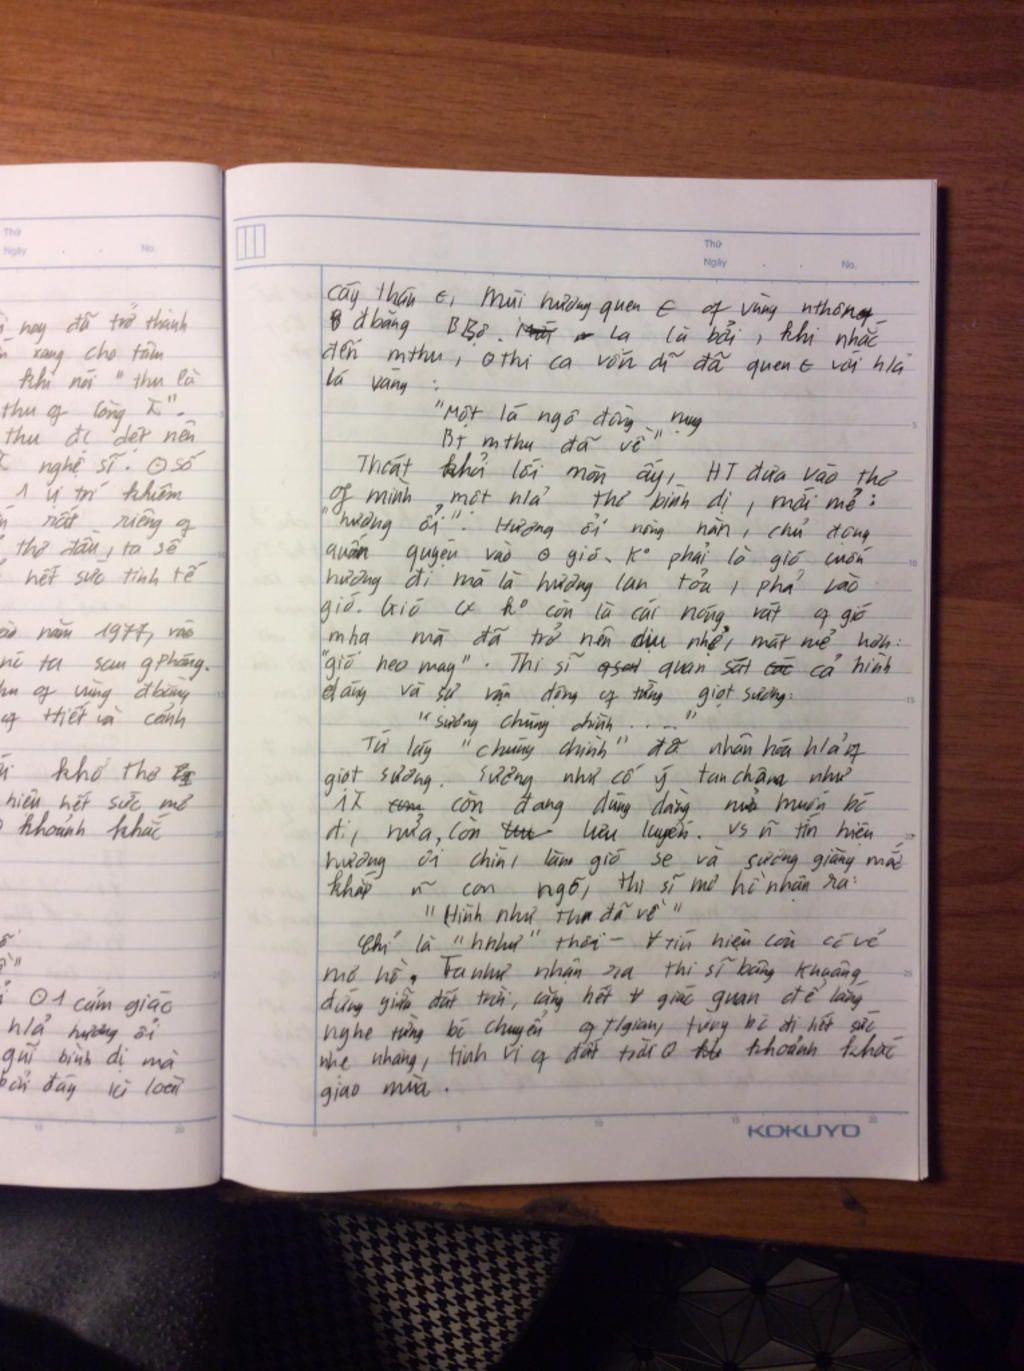 Thứ
Ngày . . No.
nay đã trở thành
xang cho tâm
khi nói " thu là
thu of lòng
thu đc dệt nên
nghệ sĩ. Θ số
1 vị trí khiêm
rất riêng of
thơ đầu, ta sẽ
hết sức tinh tế
năm 1977, vào
ta sau gphóng.
of vùng đbằng
of tiết và cảnh
khổ thơ
hiện hết sức mơ
khoảnh khắc
Θ 1 cảm giác
hương ổi
bình dị mà
đây
10 20
Thứ
Ngày . . No.
cây thân ϵ, mùi hương quen ϵ of vùng nthôn
đbằng BBộ. Lạ là bởi, khi nhắc
đến mthu, Θ thi ca vốn dĩ đã quen ϵ với h/ả
lá vàng :
"Một lá ngô đồng rụng
Bt mthu đã về"
Thoát khỏi lối mòn ấy, HT đưa vào thơ
of mình một h/ả thơ bình dị, mới mẻ :
"hương ổi". Hương ổi nồng nàn, chủ động
quấn quyện vào Θ gió. K° phải là gió cuốn
hương đi mà là hương lan tỏa, phả vào
gió. Gió cx k° còn là cái nóng rát of gió
mhạ mà đã trở nên dịu nhẹ, mát mẻ hơn:
"gió heo may". Thi sĩ quan sát cả hình
dáng và sự vận động of từng giọt sương:
"Sương chùng chình . . . ."
Từ láy "chùng chình" đã nhân hóa h/ả of
giọt sương. Sương như cố ý tan chậm như
còn đang dùng dằng muốn bc
đi, nửa, còn lưu luyến. Vs ~n tín hiệu
hương ổi chín, làn gió se và sương giăng mắc
khắp ~n con ngõ, thi sĩ mơ hồ nhận ra:
"Hình như thu đã về"
Chỉ là "hnhư" thôi – ∀ tín hiệu còn có vẻ
mơ hồ. Ta như nhận ra thi sĩ bâng khuâng
đứng giữa đất trời, căng hết ∀ giác quan để lắng
nghe từng bc chuyển of t/gian, từng bc đi hết sức
nhẹ nhàng, tinh vi of đất trời Θ khoảnh khắc
giao mùa.
5
10
15
20
25
0 5 10 15 20
KOKUYO